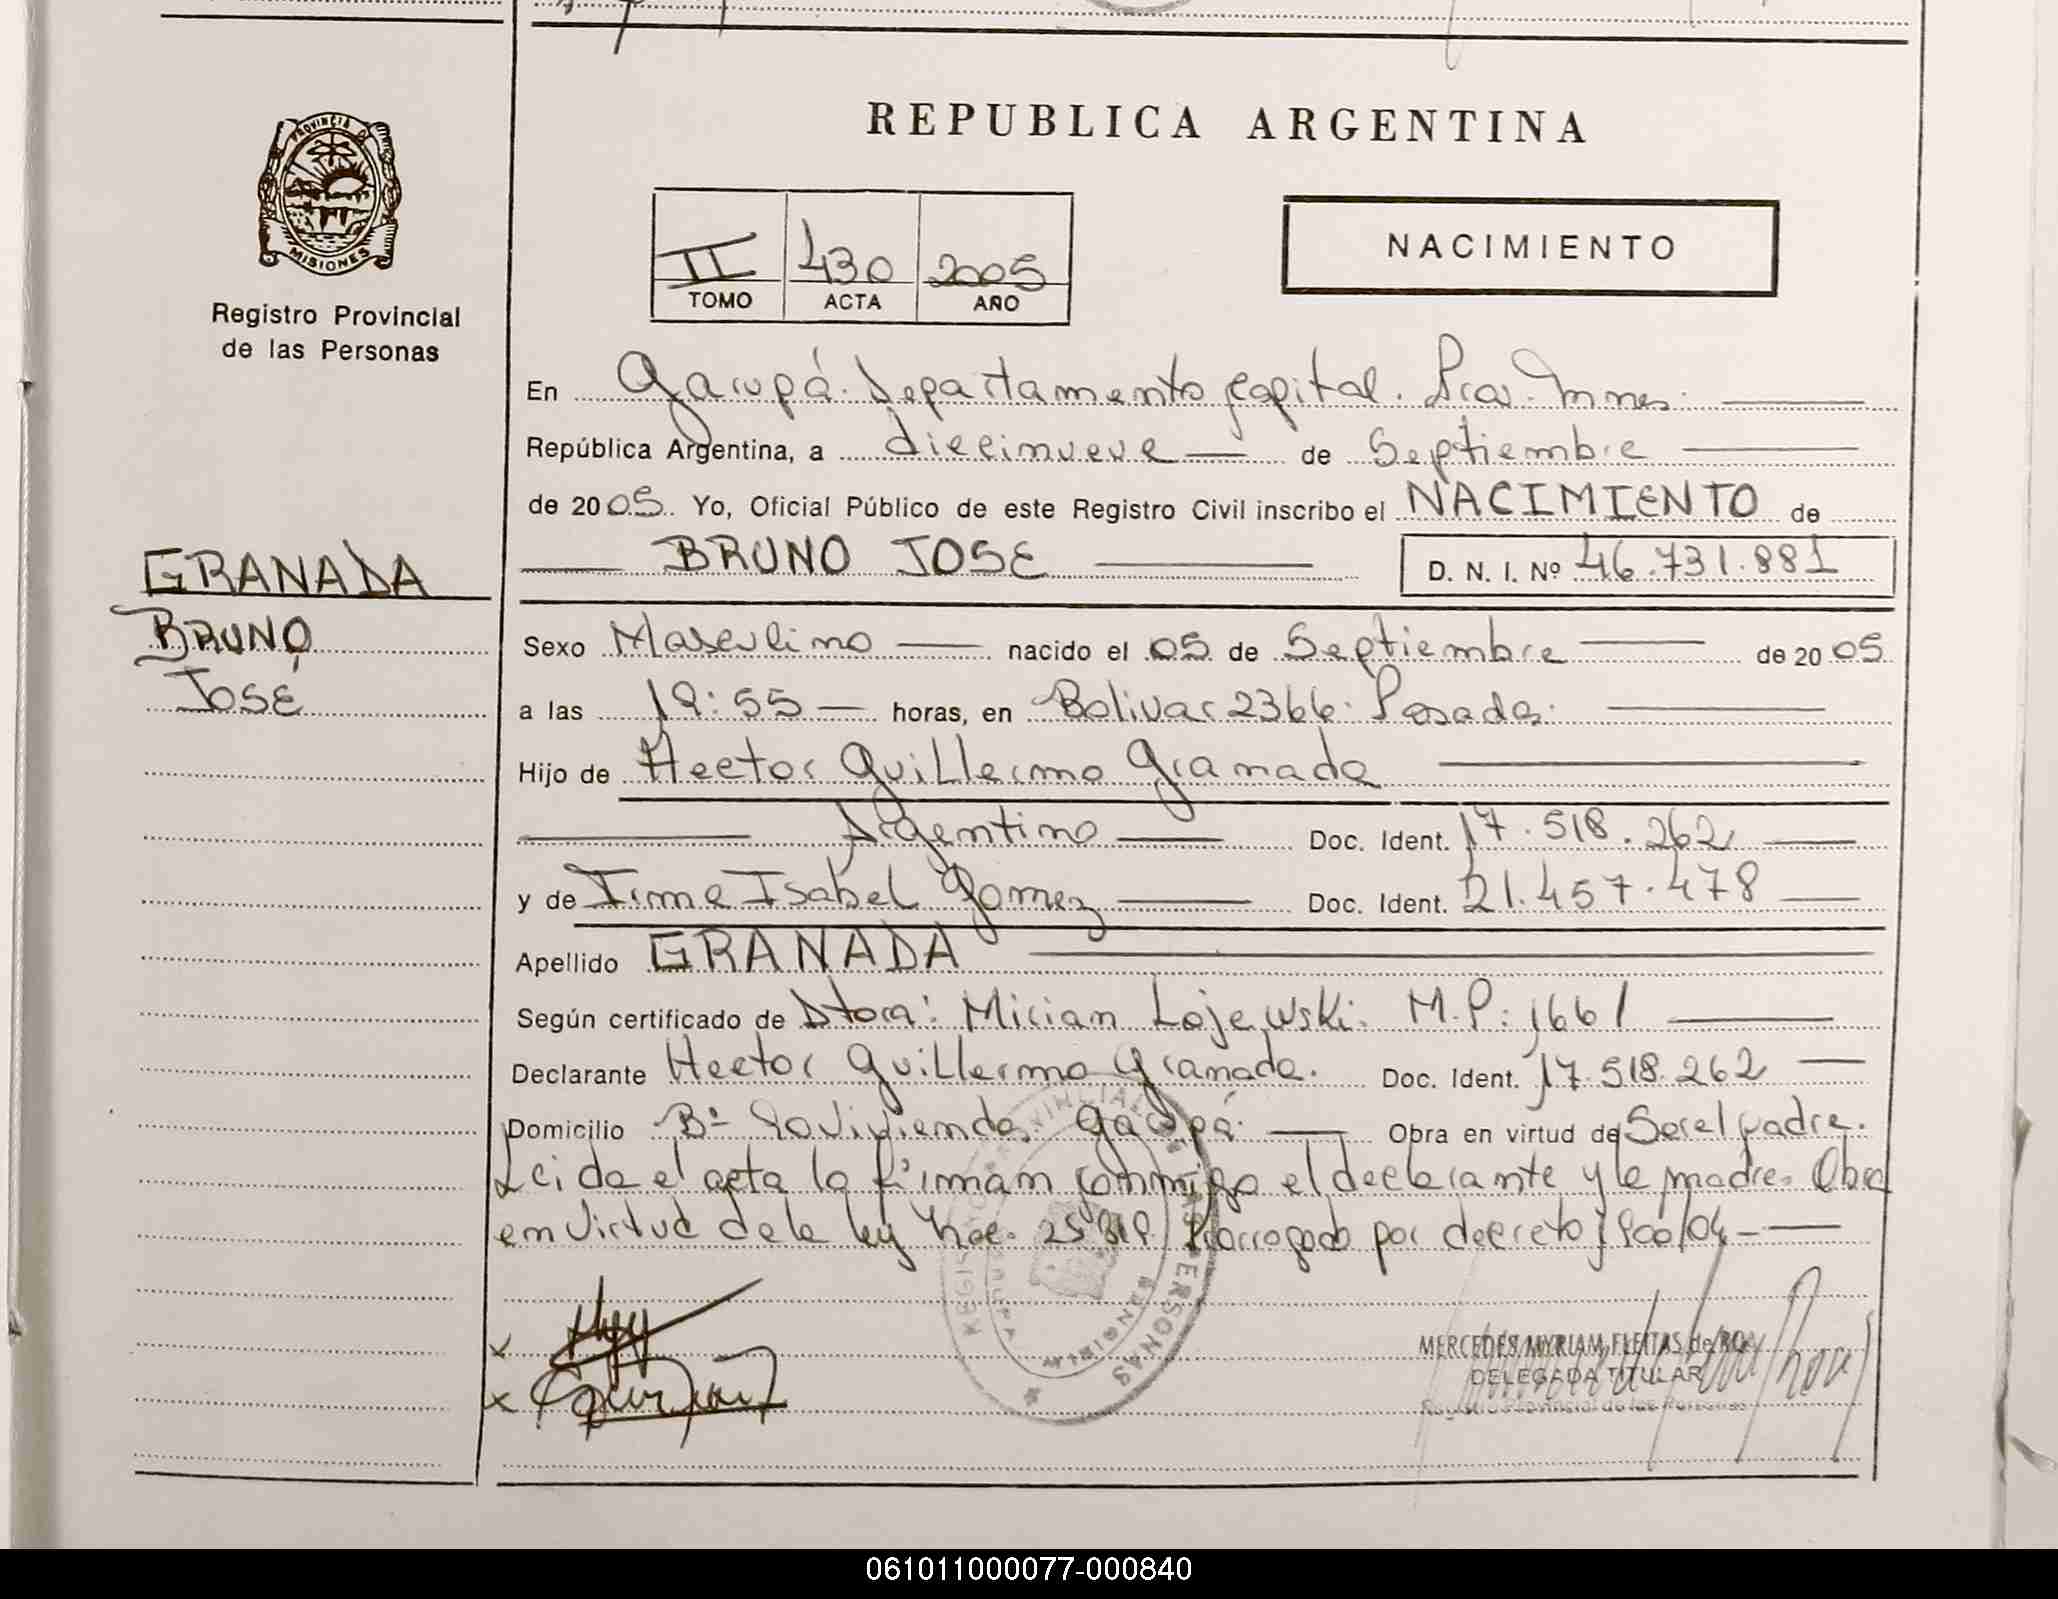 PROVINCIA DE
MISIONES
Registro Provincial
de las Personas
GRANADA
BRUNO
JOSÉ
REPUBLICA ARGENTINA
II 430 2005
TOMO ACTA AÑO
NACIMIENTO
En Garupá. Departamento Capital. Pcia. Mnes.
República Argentina, a diecinueve de Septiembre
de 2005. Yo, Oficial Público de este Registro Civil inscribo el NACIMIENTO de
BRUNO JOSE D. N. I. Nº 46.731.881
Sexo Masculino nacido el 05 de Septiembre de 2005
a las 19:55 horas, en Bolivar 2366. Posadas.
Hijo de Hector Guillermo Granada
Argentino Doc. Ident. 17.518.262
y de Irma Isabel Gomez Doc. Ident. 21.457.478
Apellido GRANADA
Según certificado de Dtora: Mirian Lojewski. M.P: 1661
Declarante Hector Guillermo Granada. Doc. Ident. 17.518.262
Domicilio Bº Viviendas Garupá. Obra en virtud de Ser el padre.
Leida el acta la firman conmigo el declarante y la madre. Obra
en virtud de la ley nac. 25819 Prorrogado por decreto 1900/04
MERCEDES MYRIAM FLEITAS de ROA
DELEGADA TITULAR
Registro Provincial de las Personas
061011000077-000840